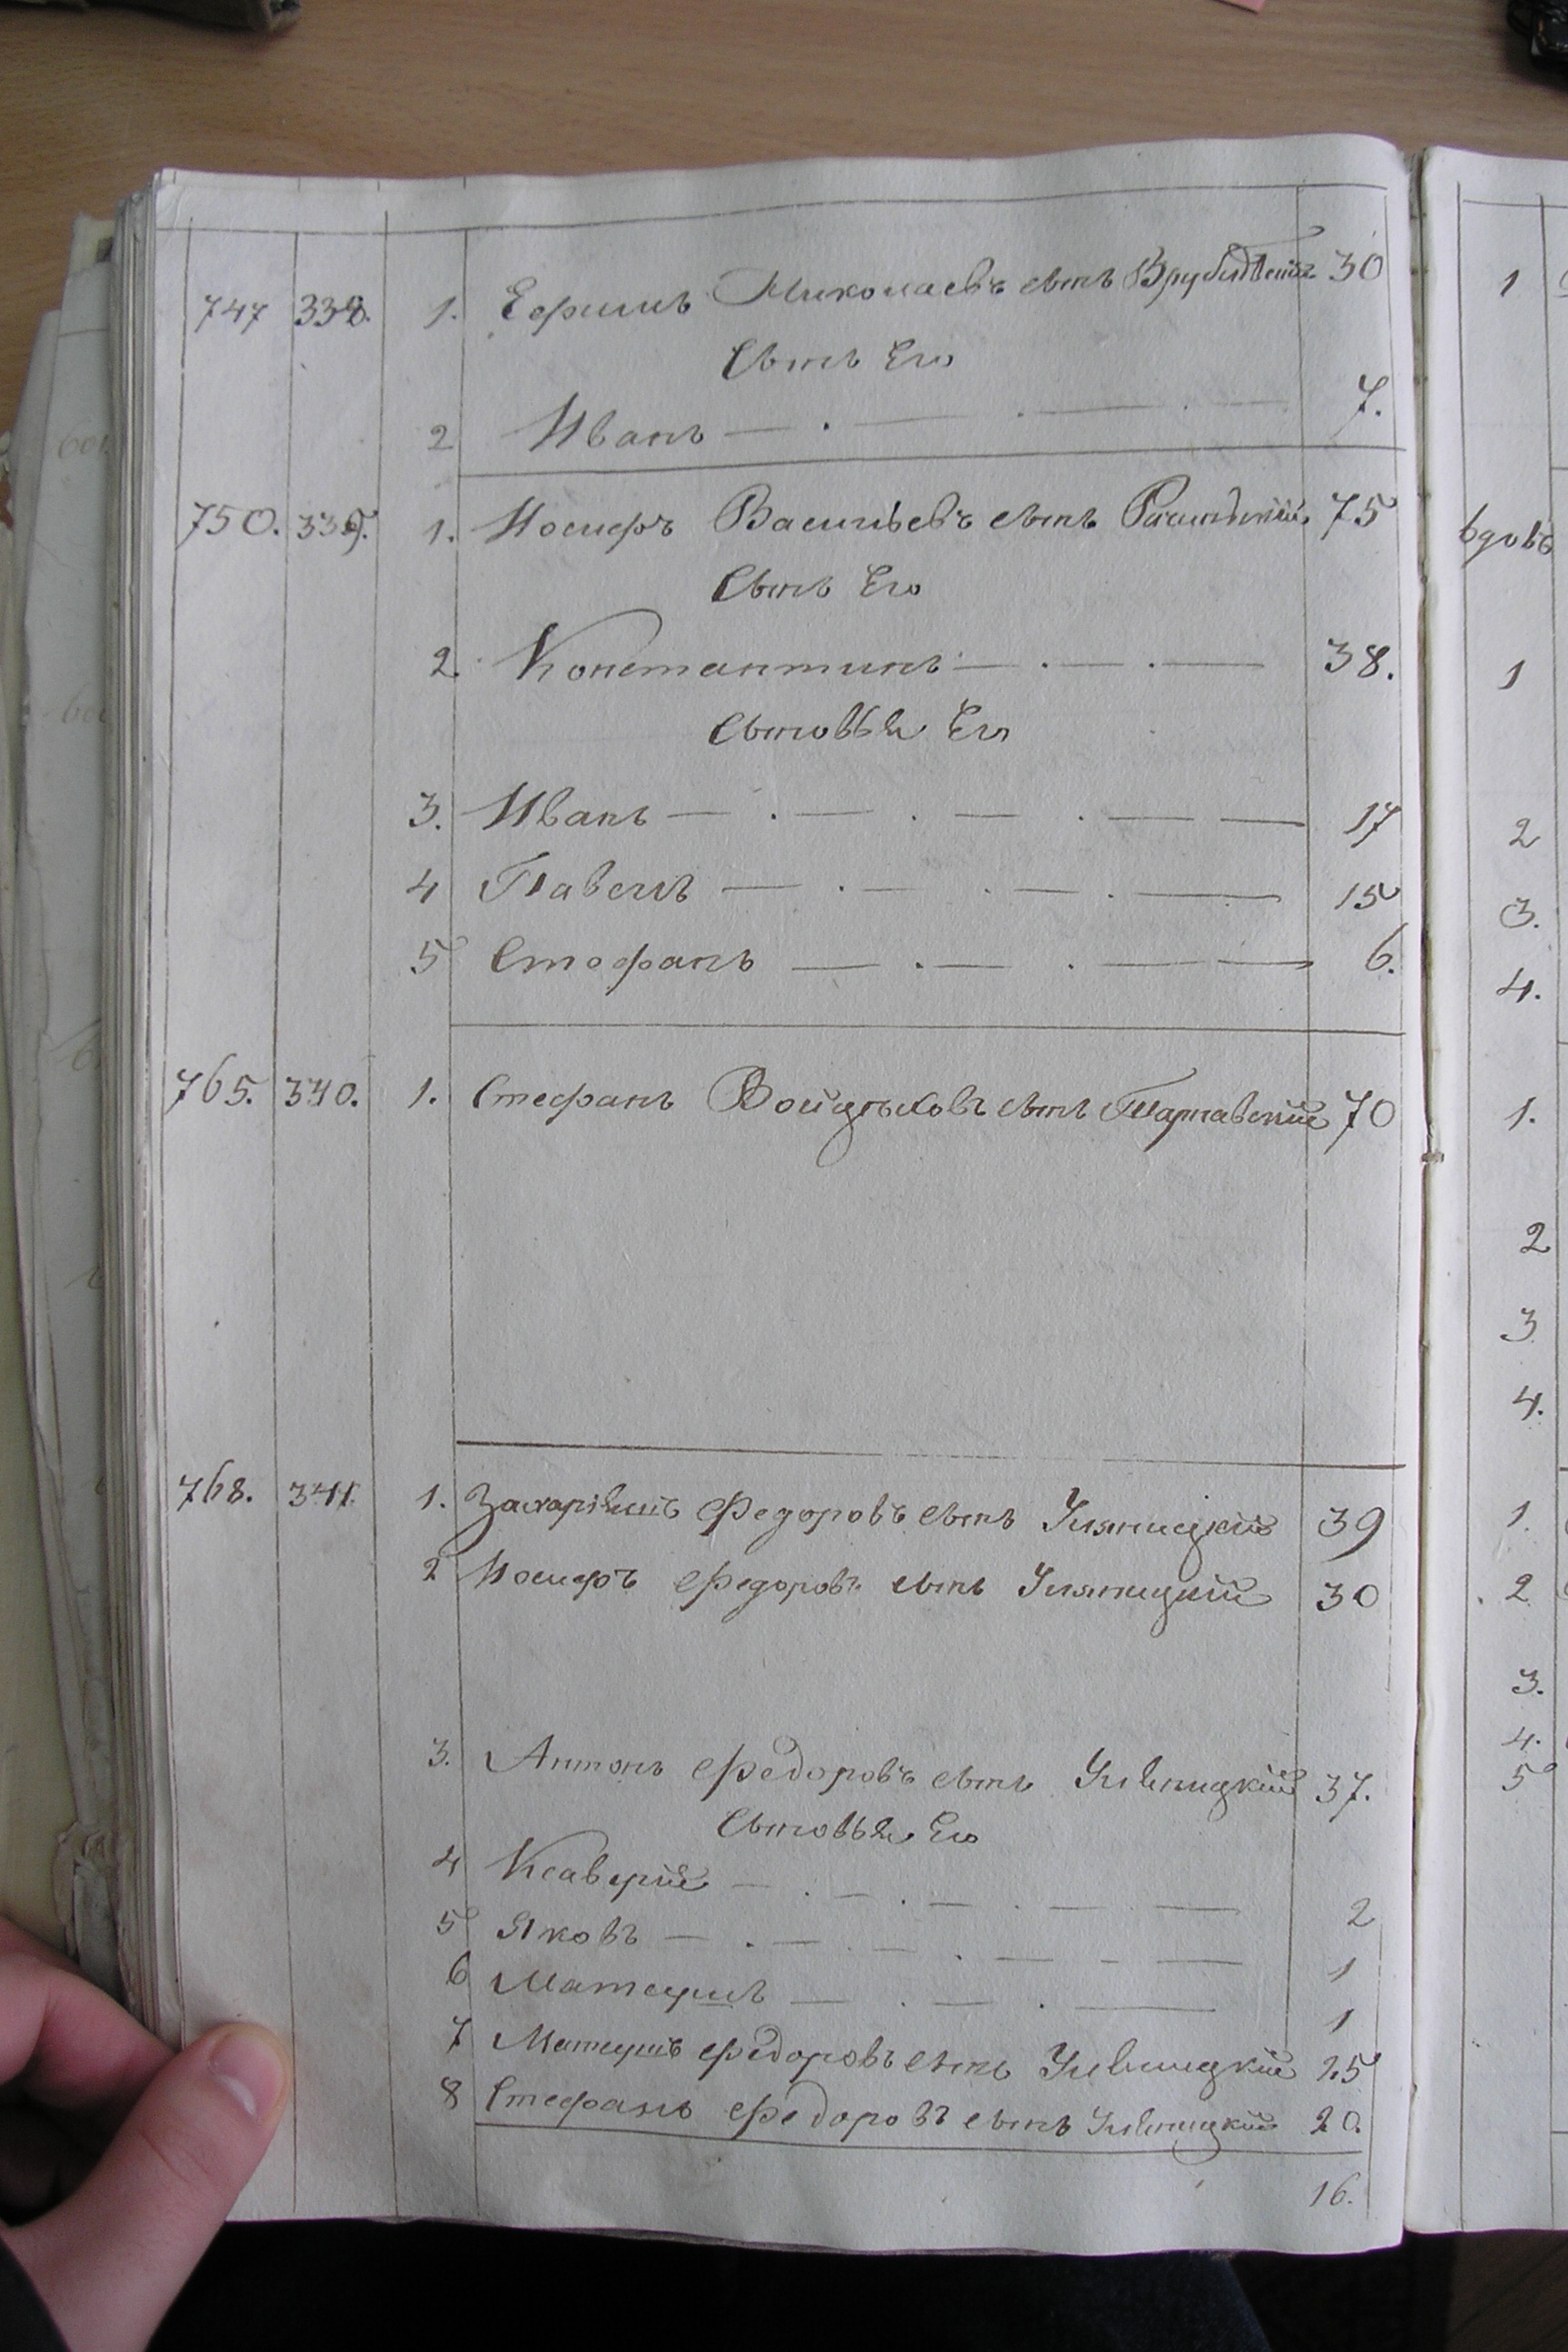 747 338. 1. Ефимъ Николаевъ сынъ Врублевскій 30
Сынъ Его
2 Иванъ 7.
750. 339. 1. Иосифъ Васильевъ сынъ 75
Сынъ Его
2. Константинъ 38.
Сыновья Его
3. Иванъ 17
4 Павелъ 15
5 Стефанъ 6.
765. 340. 1. Стефанъ Войцѣховъ сынъ 70
768. 341. 1. Захаріяшъ Федоровъ сынъ Уляницкій 39
2 Иосифъ Федоровъ сынъ Уляницкій 30
3. Антонъ Федоровъ сынъ Уляницкій 37.
Сыновья Его
4 Ксаверій 2
5 Яковъ 1
6 Матеушъ 1
7 Матеушъ Федоровъ сынъ Уляницкій 25
8 Стефанъ Федоровъ сынъ Уляницкій 20.
16.
1
вдовъ
1
2
3.
4.
1.
2
3
4.
1.
2
3.
4.
5